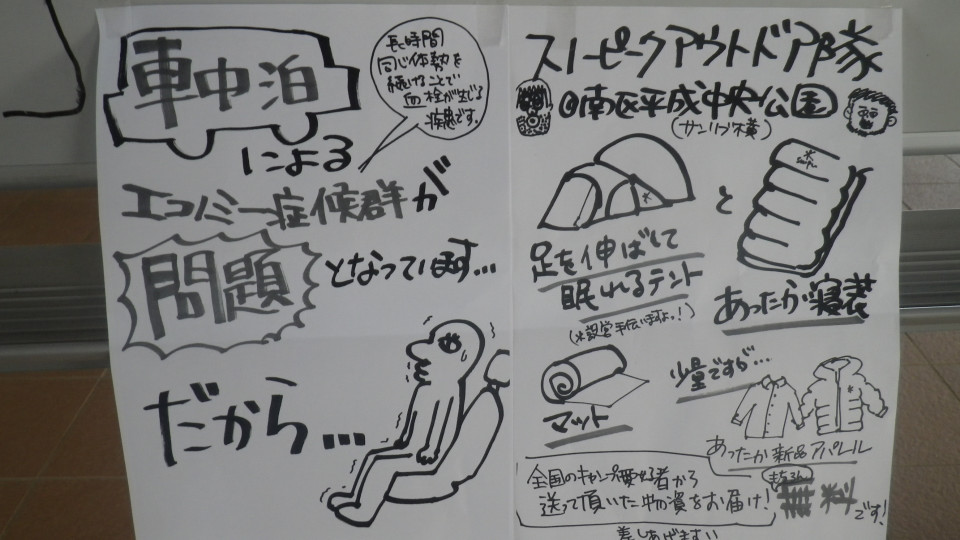 車中泊
による
長時間
同じ体勢を
続けることで
血栓が生じる
疾患です。
エコノミー症候群が
問題
となっています…
だから…
スノーピークアウトドア隊
@南区平成中央公園
と
足を伸ばして
眠れるテント
(※設営手伝いますよッ!)
あったか寝袋
マット
少量ですが…
あったか新品アパレル
全国のキャンプ愛好者から
送って頂いた物資をお届け!
もちろん
無料です!
差しあげます